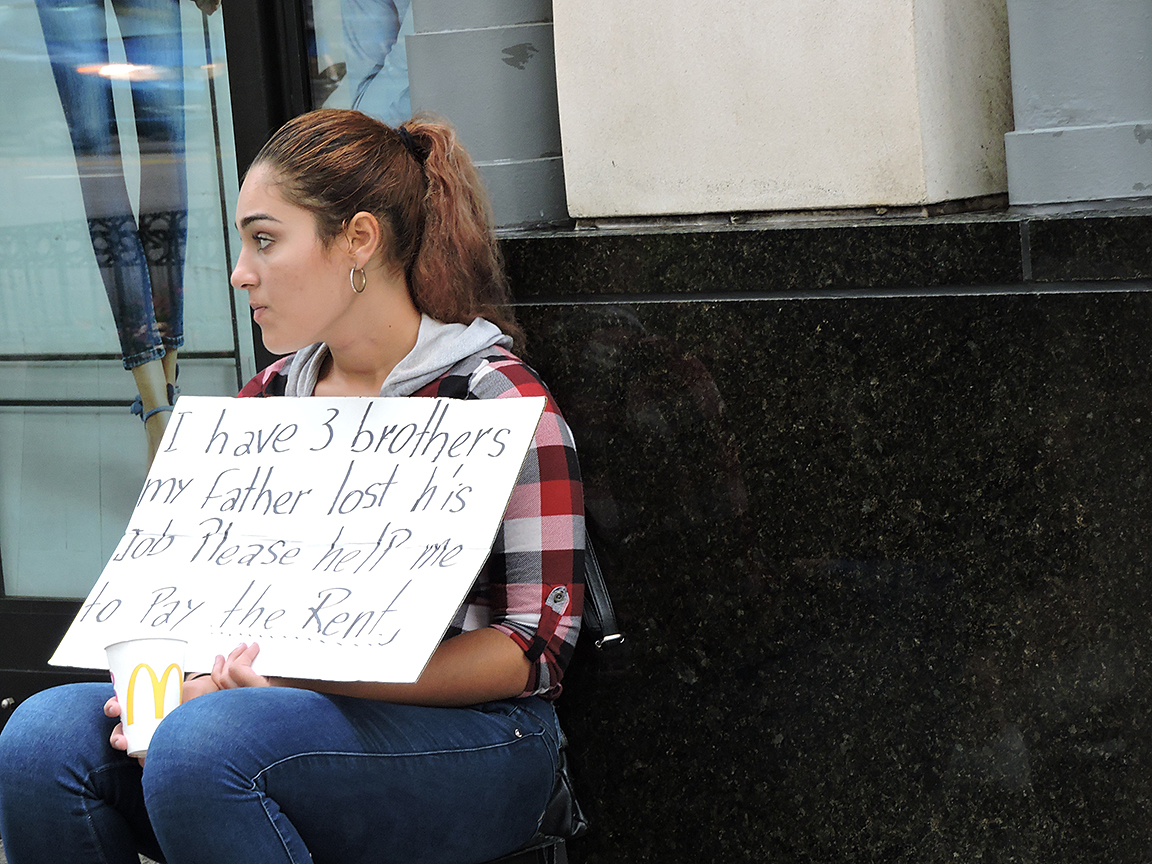 I have 3 brothers
my Father lost his
Job Please help me
to Pay the Rent,
M